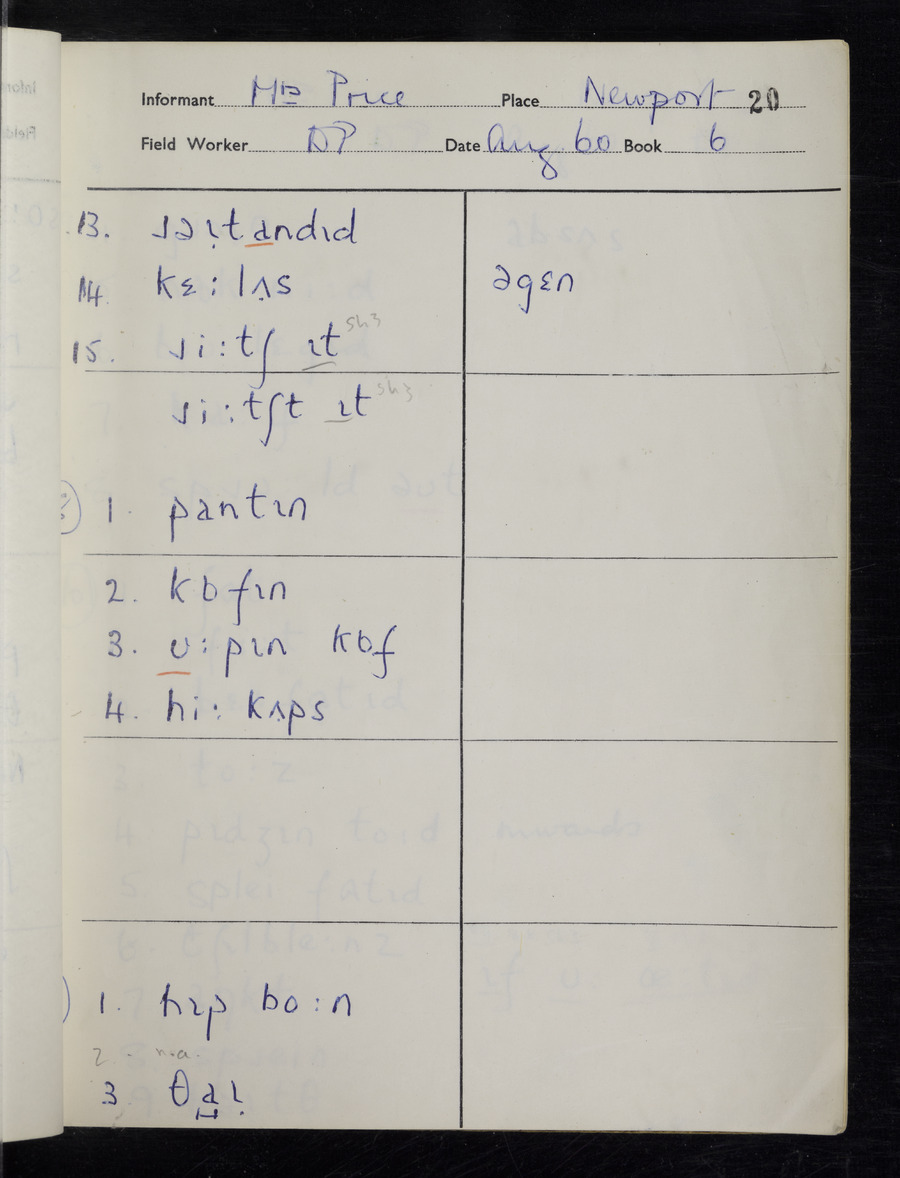 Informant Mrs Price Place Newport 20
Field Worker DP Date Aug 60 Book 6
13. ɹəɪtandɪd
14. kɛ:lʌs əgɛn
15. ɹi:tʃ ɪt sh3
ɹi:tʃt ɪt sh3
1. pantɪn
2. kɒfɪn
3. ʊ:pɪn kɒf
4. hi: kʌps
1. hɪp bo:n
2. n.a.